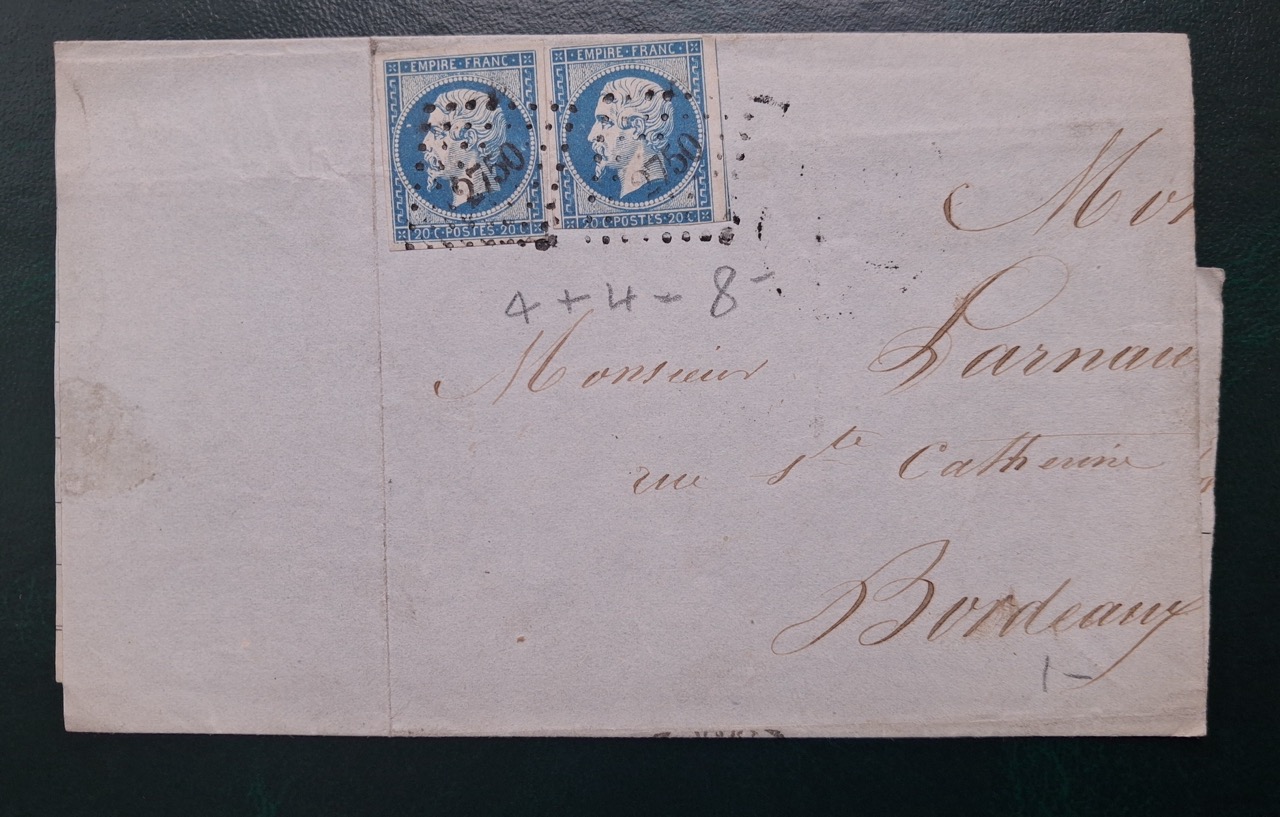 EMPIRE·FRANC· EMPIRE·FRANC·
2750 2750
20 C·POSTES·20 C 20 C·POSTES·20 C
4 + 4 - 8 -
Mon
Monsieur
rue Ste Catherine
Bordeaux
1 -